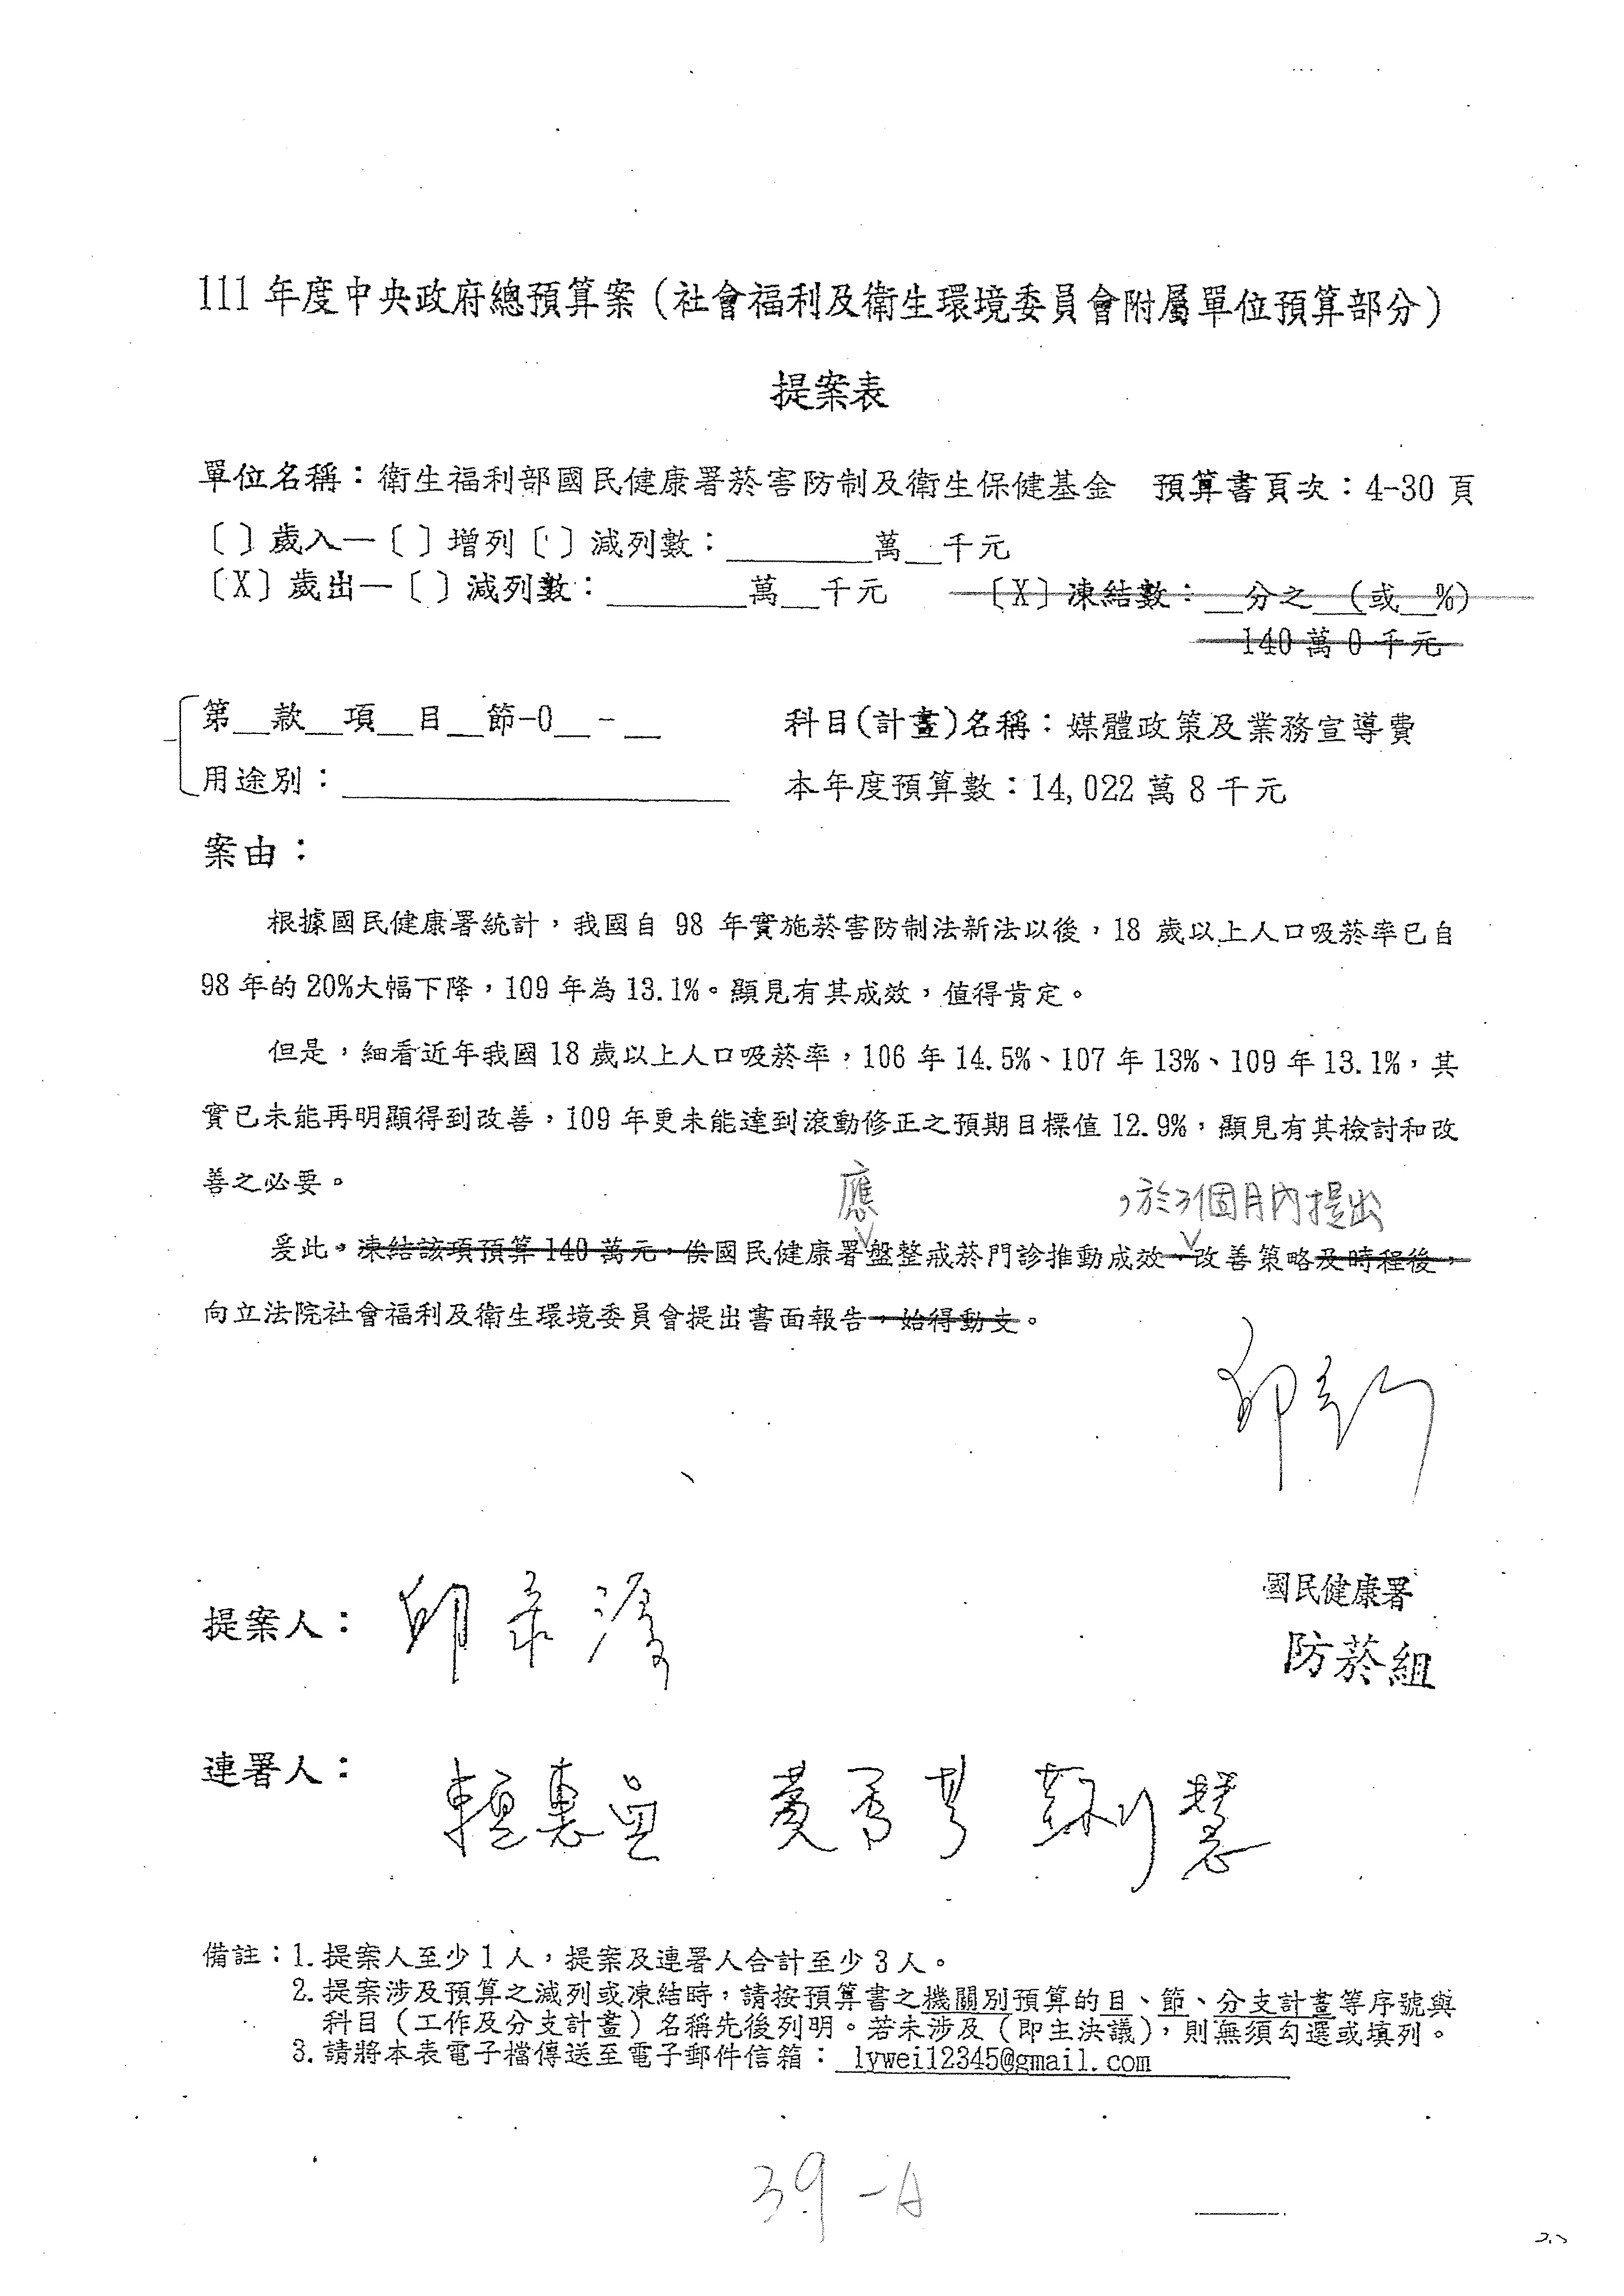 111 年度中央政府總預算案（社會福利及衛生環境委員會附屬單位預算部分）
提案表
單位名稱：衛生福利部國民健康署菸害防制及衛生保健基金 預算書頁次：4-30 頁
〔〕歲入—〔〕增列〔〕減列數：______萬__千元
〔X〕歲出—〔〕減列數：______萬__千元 〔X〕凍結數：__分之__（或__%）
140 萬 0 千元
第__款__項__目__節-0__-__ 科目(計畫)名稱：媒體政策及業務宣導費
用途別：________________ 本年度預算數：14,022 萬 8 千元
案由：
根據國民健康署統計，我國自 98 年實施菸害防制法新法以後，18 歲以上人口吸菸率已自
98 年的 20%大幅下降，109 年為 13.1%。顯見有其成效，值得肯定。
但是，細看近年我國 18 歲以上人口吸菸率，106 年 14.5%、107 年 13%、109 年 13.1%，其
實已未能再明顯得到改善，109 年更未能達到滾動修正之預期目標值 12.9%，顯見有其檢討和改
善之必要。
應 ，於3個月內提出
爰此，凍結該項預算 140 萬元，俟國民健康署盤整戒菸門診推動成效、改善策略及時程後，
向立法院社會福利及衛生環境委員會提出書面報告，始得動支。
提案人：
國民健康署
防菸組
連署人：賴惠員 黃秀芳 蘇巧慧
備註：1.提案人至少 1 人，提案及連署人合計至少 3 人。
2.提案涉及預算之減列或凍結時，請按預算書之機關別預算的目、節、分支計畫等序號與
科目（工作及分支計畫）名稱先後列明。若未涉及（即主決議），則無須勾選或填列。
3.請將本表電子檔傳送至電子郵件信箱：lywei12345@gmail.com
39-A